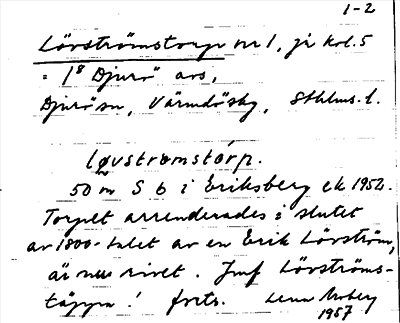 1-2
Lövströmstorp nr 1, jr kol. 5
= 1⁸ Djurö avs,
Djurö sn, Värmdö sky, Sthlms. l.
løvstrømstórp.
50 m S 6 i Eriksberg ek 1952.
Torpet arrenderades i slutet
av 1800-talet av en Erik Lövström,
är nu rivet. Jmf Lövströms-
täppa! forts.
1957